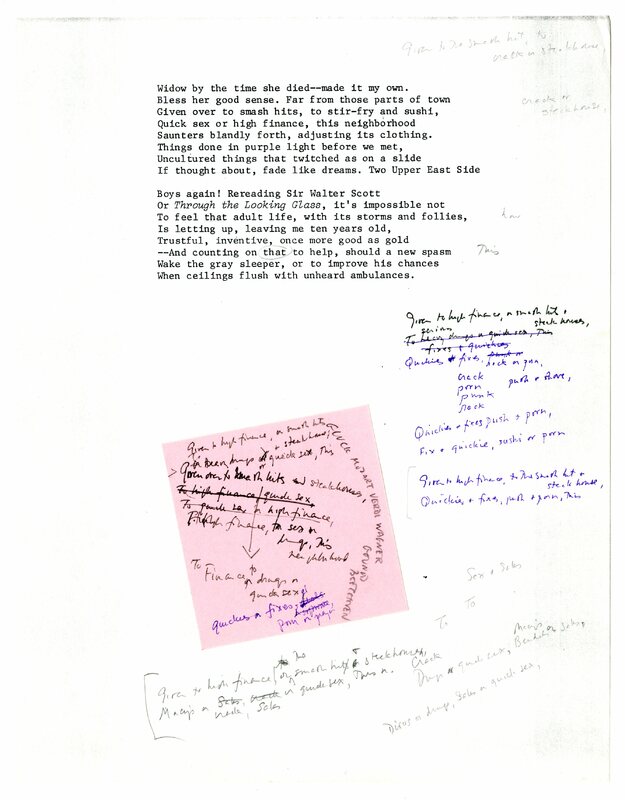 Given to the smash hit, to
crack or steakhouse,
Widow by the time she died--made it my own.
Bless her good sense. Far from those parts of town
Given over to smash hits, to stir-fry and sushi,
crack or
steakhouse,
Quick sex or high finance, this neighborhood
Saunters blandly forth, adjusting its clothing.
Things done in purple light before we met,
Uncultured things that twitched as on a slide
If thought about, fade like dreams. Two Upper East Side
Boys again! Rereading Sir Walter Scott
Or Through the Looking Glass, it's impossible not
To feel that adult life, with its storms and follies,
Is letting up, leaving me ten years old,
Trustful, inventive, once more good as gold
--And counting on that to help, should a new spasm
This
Wake the gray sleeper, or to improve his chances
When ceilings flush with unheard ambulances.
Given to high finance, or smash hit +
steak houses,
To heavy drugs or quick sex, This
fixes + quickies
Quickies + fixes, rock or porn,
crack
porn push + shove,
punk
rock
Quickies + fixes push + porn,
Fix + quickie, sushi or porn
Given to high finance, to the smash hit +
steak house,
Quickies + fixes, push + porn, This
Given to high finance, or smash hits
+ steak house,
or heavy drugs or quick sex, This
Given over to smash hits and steakhouses,
To high finance/quick sex
To quick sex or high finance,
high finance, to sex or
drugs, This
neighborhood
To Finance
or drugs or
quick sex
quickies or fixes,
GLUCK MOZART VERDI WAGNER
GOUNOD
BEETHOVEN
Sex + Saks
To To
Given to high finance, to the smash hit + steakhouses,
Macy's or Saks, or quick sex, This n.
Crack
Drugs or quick sex,
Macy's
Bendel or Saks,
Divas or drugs, Saks or quick sex,